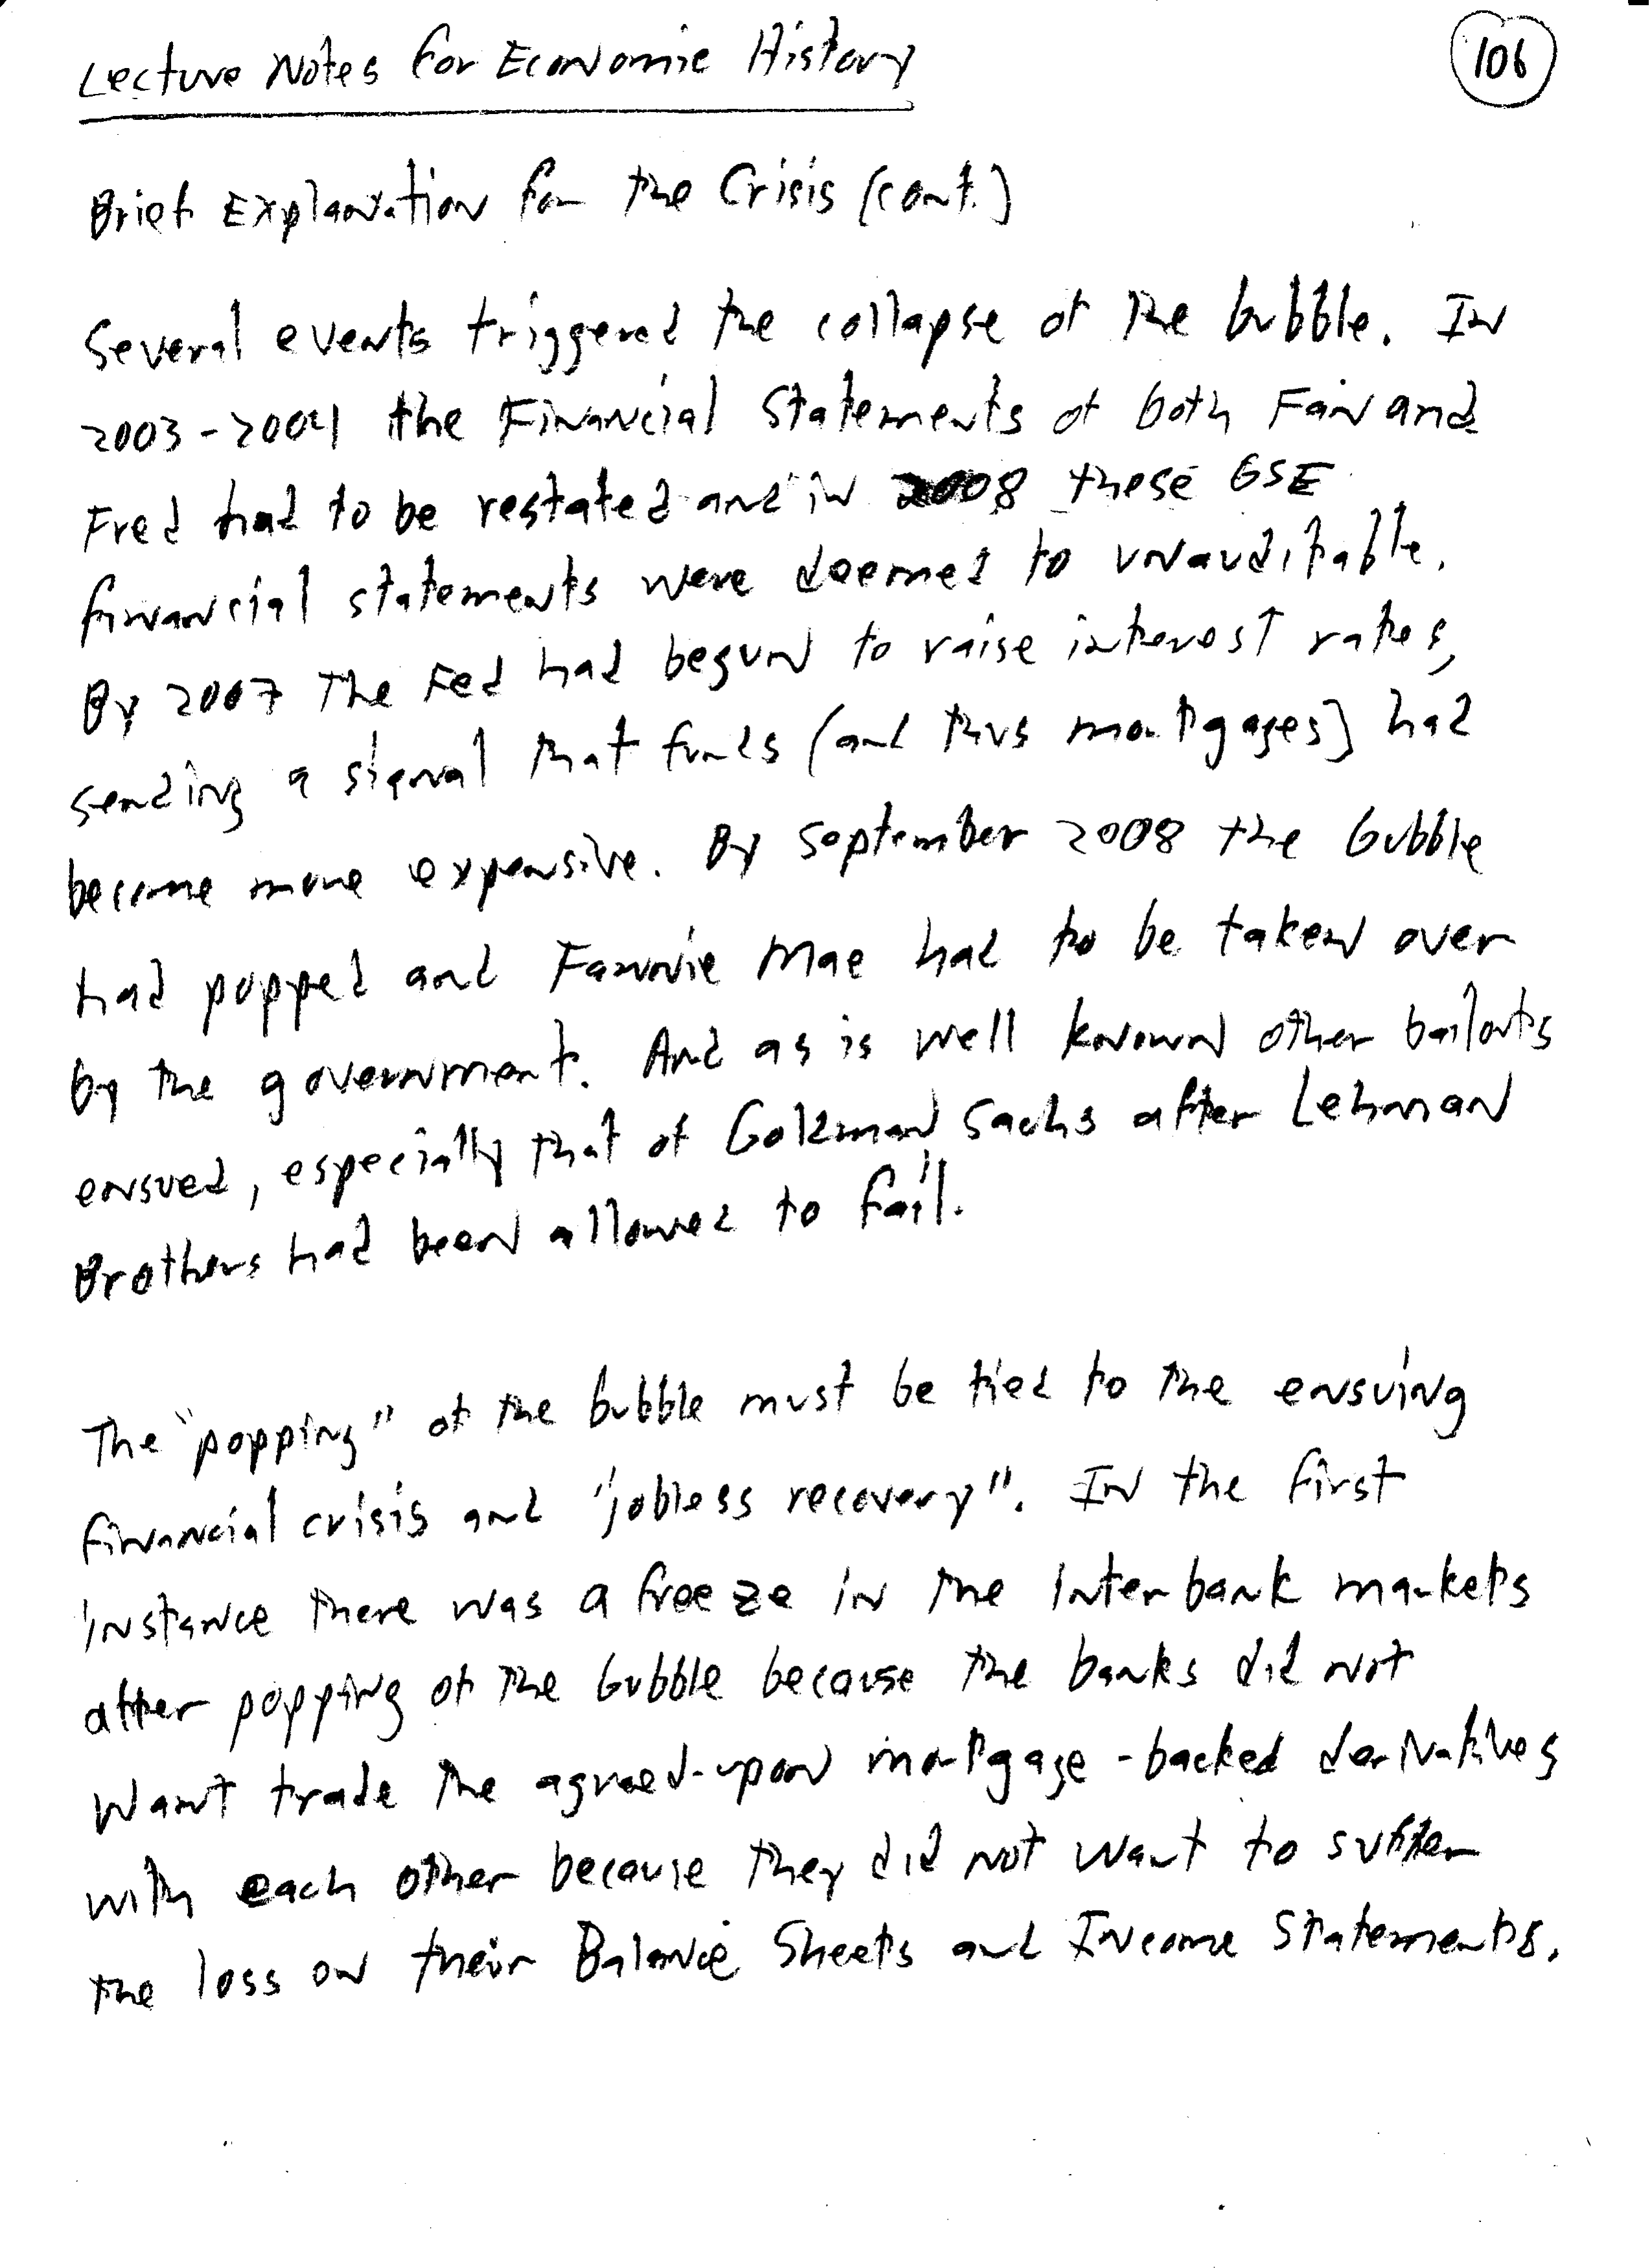 Lecture Notes for Economic History
106
Brief Explanation for the Crisis (cont.)
Several events triggered the collapse of the bubble. In
2003-2004 the Financial Statements of both Fan and
Fred had to be restated and in 2008 these GSE
financial statements were deemed to unauditable.
By 2007 the Fed had begun to raise interest rates,
sending a signal that funds (and thus mortgages) had
become more expensive. By September 2008 the bubble
had popped and Fannie Mae had to be taken over
by the government. And as is well known other bailouts
ensued, especially that of Goldman Sachs after Lehman
Brothers had been allowed to fail.
The "popping" of the bubble must be tied to the ensuing
financial crisis and "jobless recovery". In the first
instance there was a freeze in the interbank markets
after popping of the bubble because the banks did not
want trade the agreed-upon mortgage-backed derivatives
with each other because they did not want to suffer
the loss on their Balance Sheets and Income Statements.